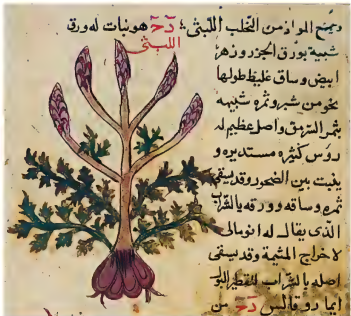 ويمنع المواد من التحلب اللبثى دَحَ هو نبات له ورق
اللبثى
شبيه بورق الجزر وزهر
ابيض وساق غليظ طولها
نحو من شبر وثمره شبيهه
بثمر السرمق واصل عظيم له
رؤس كثيره مستديره و
ينبت بين الصخور وقد يسقى
ثمره وساقه وورقه بالشراب
الذى يقال له انومالى
لاخراج المشيمة وقد يسقى
اصله بالشراب لتقطير البول
ايما دو قالس دَحَ من